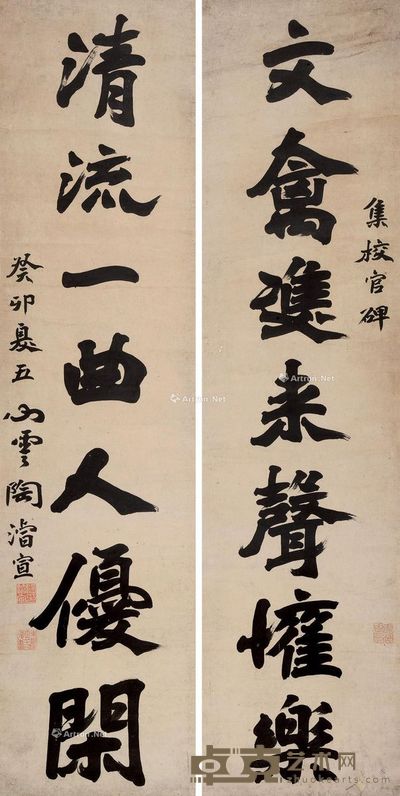 文禽雙来聲懽樂
集校官碑
清流一曲人優閑
癸卯夏五心雲陶濬宣
Artron.Net
Artron.Net
Artron.Net
Artron.Net
卓克艺术网